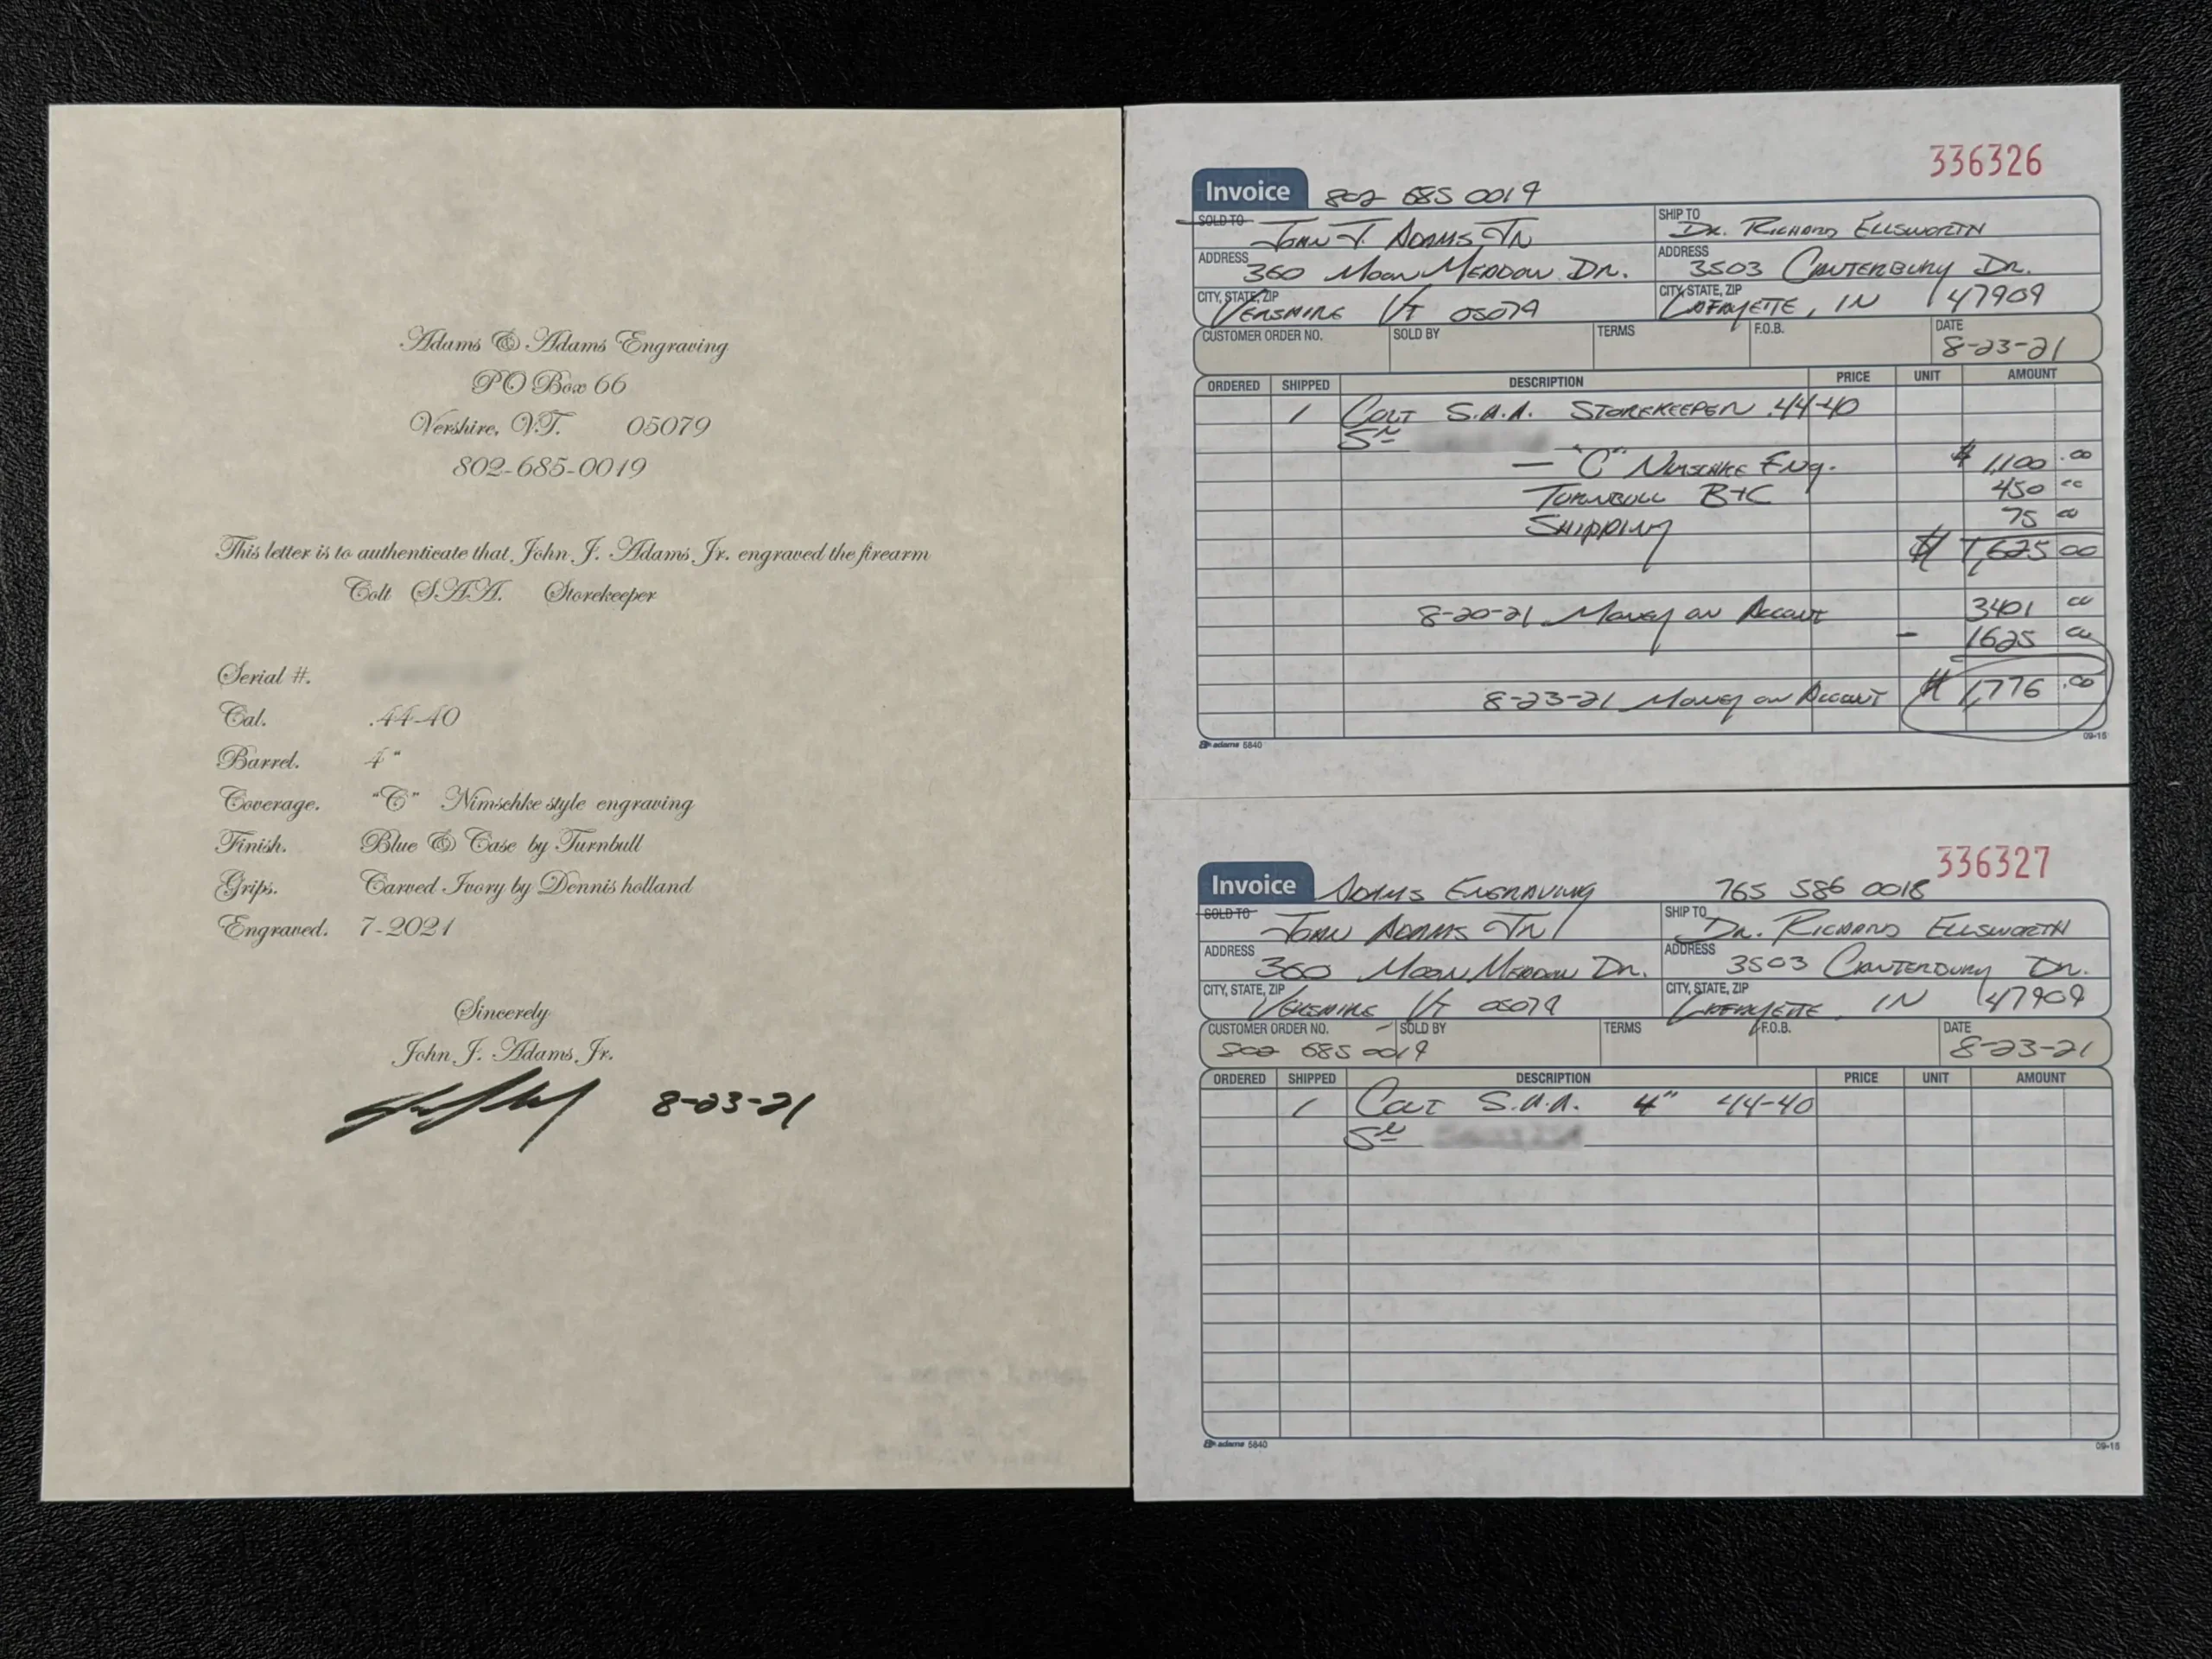 Adams & Adams Engraving
PO Box 66
Vershire, VT. 05079
802-685-0019
This letter is to authenticate that John J. Adams Jr. engraved the firearm
Colt S.A.A. Storekeeper
Serial #.
Cal. .44-40
Barrel. 4"
Coverage. "C" Nimschke style engraving
Finish. Blue & Case by Turnbull
Grips. Carved Ivory by Dennis holland
Engraved. 7-2021
Sincerely
John J. Adams Jr.
8-23-21
336326
Invoice 802 685 0019
SOLD TO John J. Adams Jr
SHIP TO Dr. Richard Ellsworth
ADDRESS 360 Moon Meadow Dr.
ADDRESS 3503 Canterbury Dr.
CITY, STATE, ZIP Vershire VT 05079
CITY, STATE, ZIP Lafayette, IN 47909
CUSTOMER ORDER NO. SOLD BY TERMS F.O.B. DATE
8-23-21
ORDERED SHIPPED DESCRIPTION PRICE UNIT AMOUNT
1 Colt S.A.A. Storekeeper .44-40
Sn
— "C" Nimschke Eng. $ 1,100.00
Turnbull B+C 450 00
Shipping 75 00
$ 1,625 00
8-20-21 Money on Account 3401 00
- 1625 00
8-23-21 Money on Account $ 1,776.00
adams 5840 09-15
336327
Invoice Adams Engraving 765 586 0018
SOLD TO John Adams Jr
SHIP TO Dr. Richard Ellsworth
ADDRESS 360 Moon Meadow Dr.
ADDRESS 3503 Canterbury Dr.
CITY, STATE, ZIP Vershire VT 05079
CITY, STATE, ZIP Lafayette, IN 47909
CUSTOMER ORDER NO. SOLD BY TERMS F.O.B. DATE
802 685 0019 8-23-21
ORDERED SHIPPED DESCRIPTION PRICE UNIT AMOUNT
1 Colt S.A.A. 4" 44-40
Sn
adams 5840 09-15